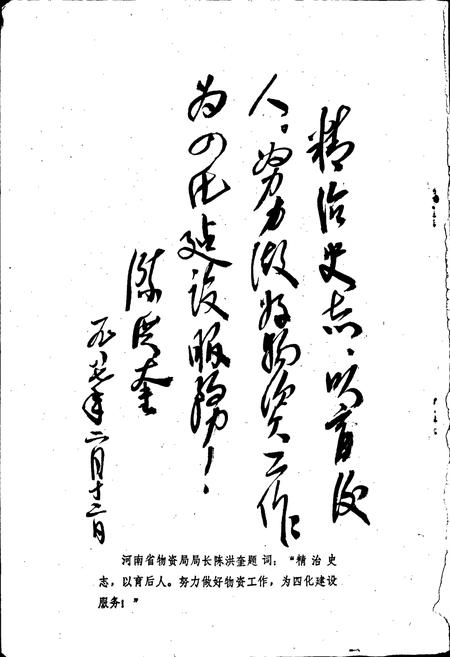 精治史志，以育後
人。努力做好物资工作，
为四化建设服务！
陈洪奎
年二月十二日
河南省物资局局长陈洪奎题词：“精治史
志，以育后人。努力做好物资工作，为四化建设
服务！”